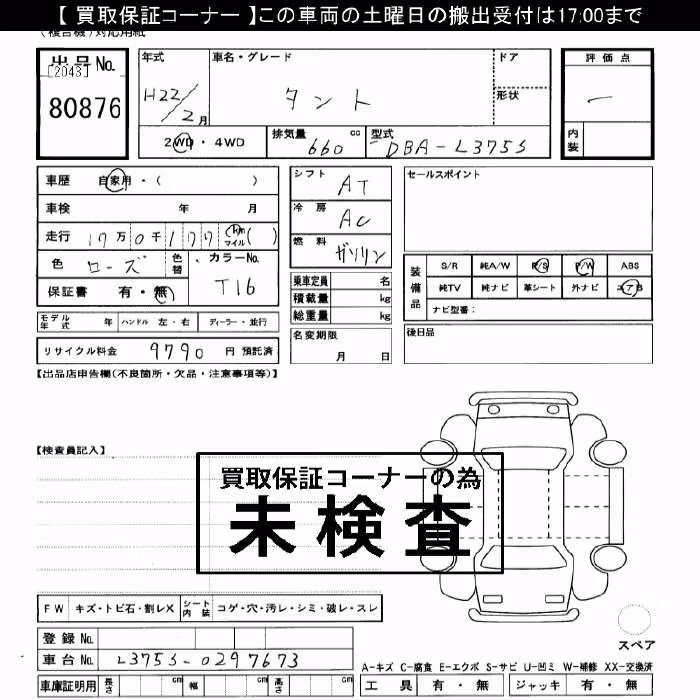 【 買取保証コーナー 】この車両の土曜日の搬出受付は17:00まで
(複合機)対応用紙
出品No.
[2043]
80876
年式
H22/2月
車名・グレード
タント
ドア
形状
評価点
ー
内装
2WD・4WD
排気量
660
cc
型式
DBA-L375S
車歴 自家用・( )
車検 年 月
走行 17万0千177 km マイル ( )
色 ローズ 色替 カラーNo. T16
保証書 有・無
モデル年式 年 ハンドル 左・右 ディーラー・並行
リサイクル料金 9790 円 預託済
シフト AT
冷房 AC
燃料 ガソリン
乗車定員 名
積載量 kg
総重量 kg
名変期限
月 日
セールスポイント
装備品
S/R 純A/W P/S P/W ABS
純TV 純ナビ 革シート 外ナビ エアB
ナビ型番:
後日品
【出品店申告欄(不良箇所・欠品・注意事項等)】
【検査員記入】
買取保証コーナーの為
未検査
FW キズ・トビ石・割レX シート内装 コゲ・穴・汚レ・シミ・破レ・スレ
スペア
登録No.
車台No. L375S-0297673
車庫証明用 長さ cm 幅 cm 高さ cm
A-キズ C-腐食 E-エクボ S-サビ U-凹ミ W-補修 XX-交換済
工具 有・無 ジャッキ 有・無